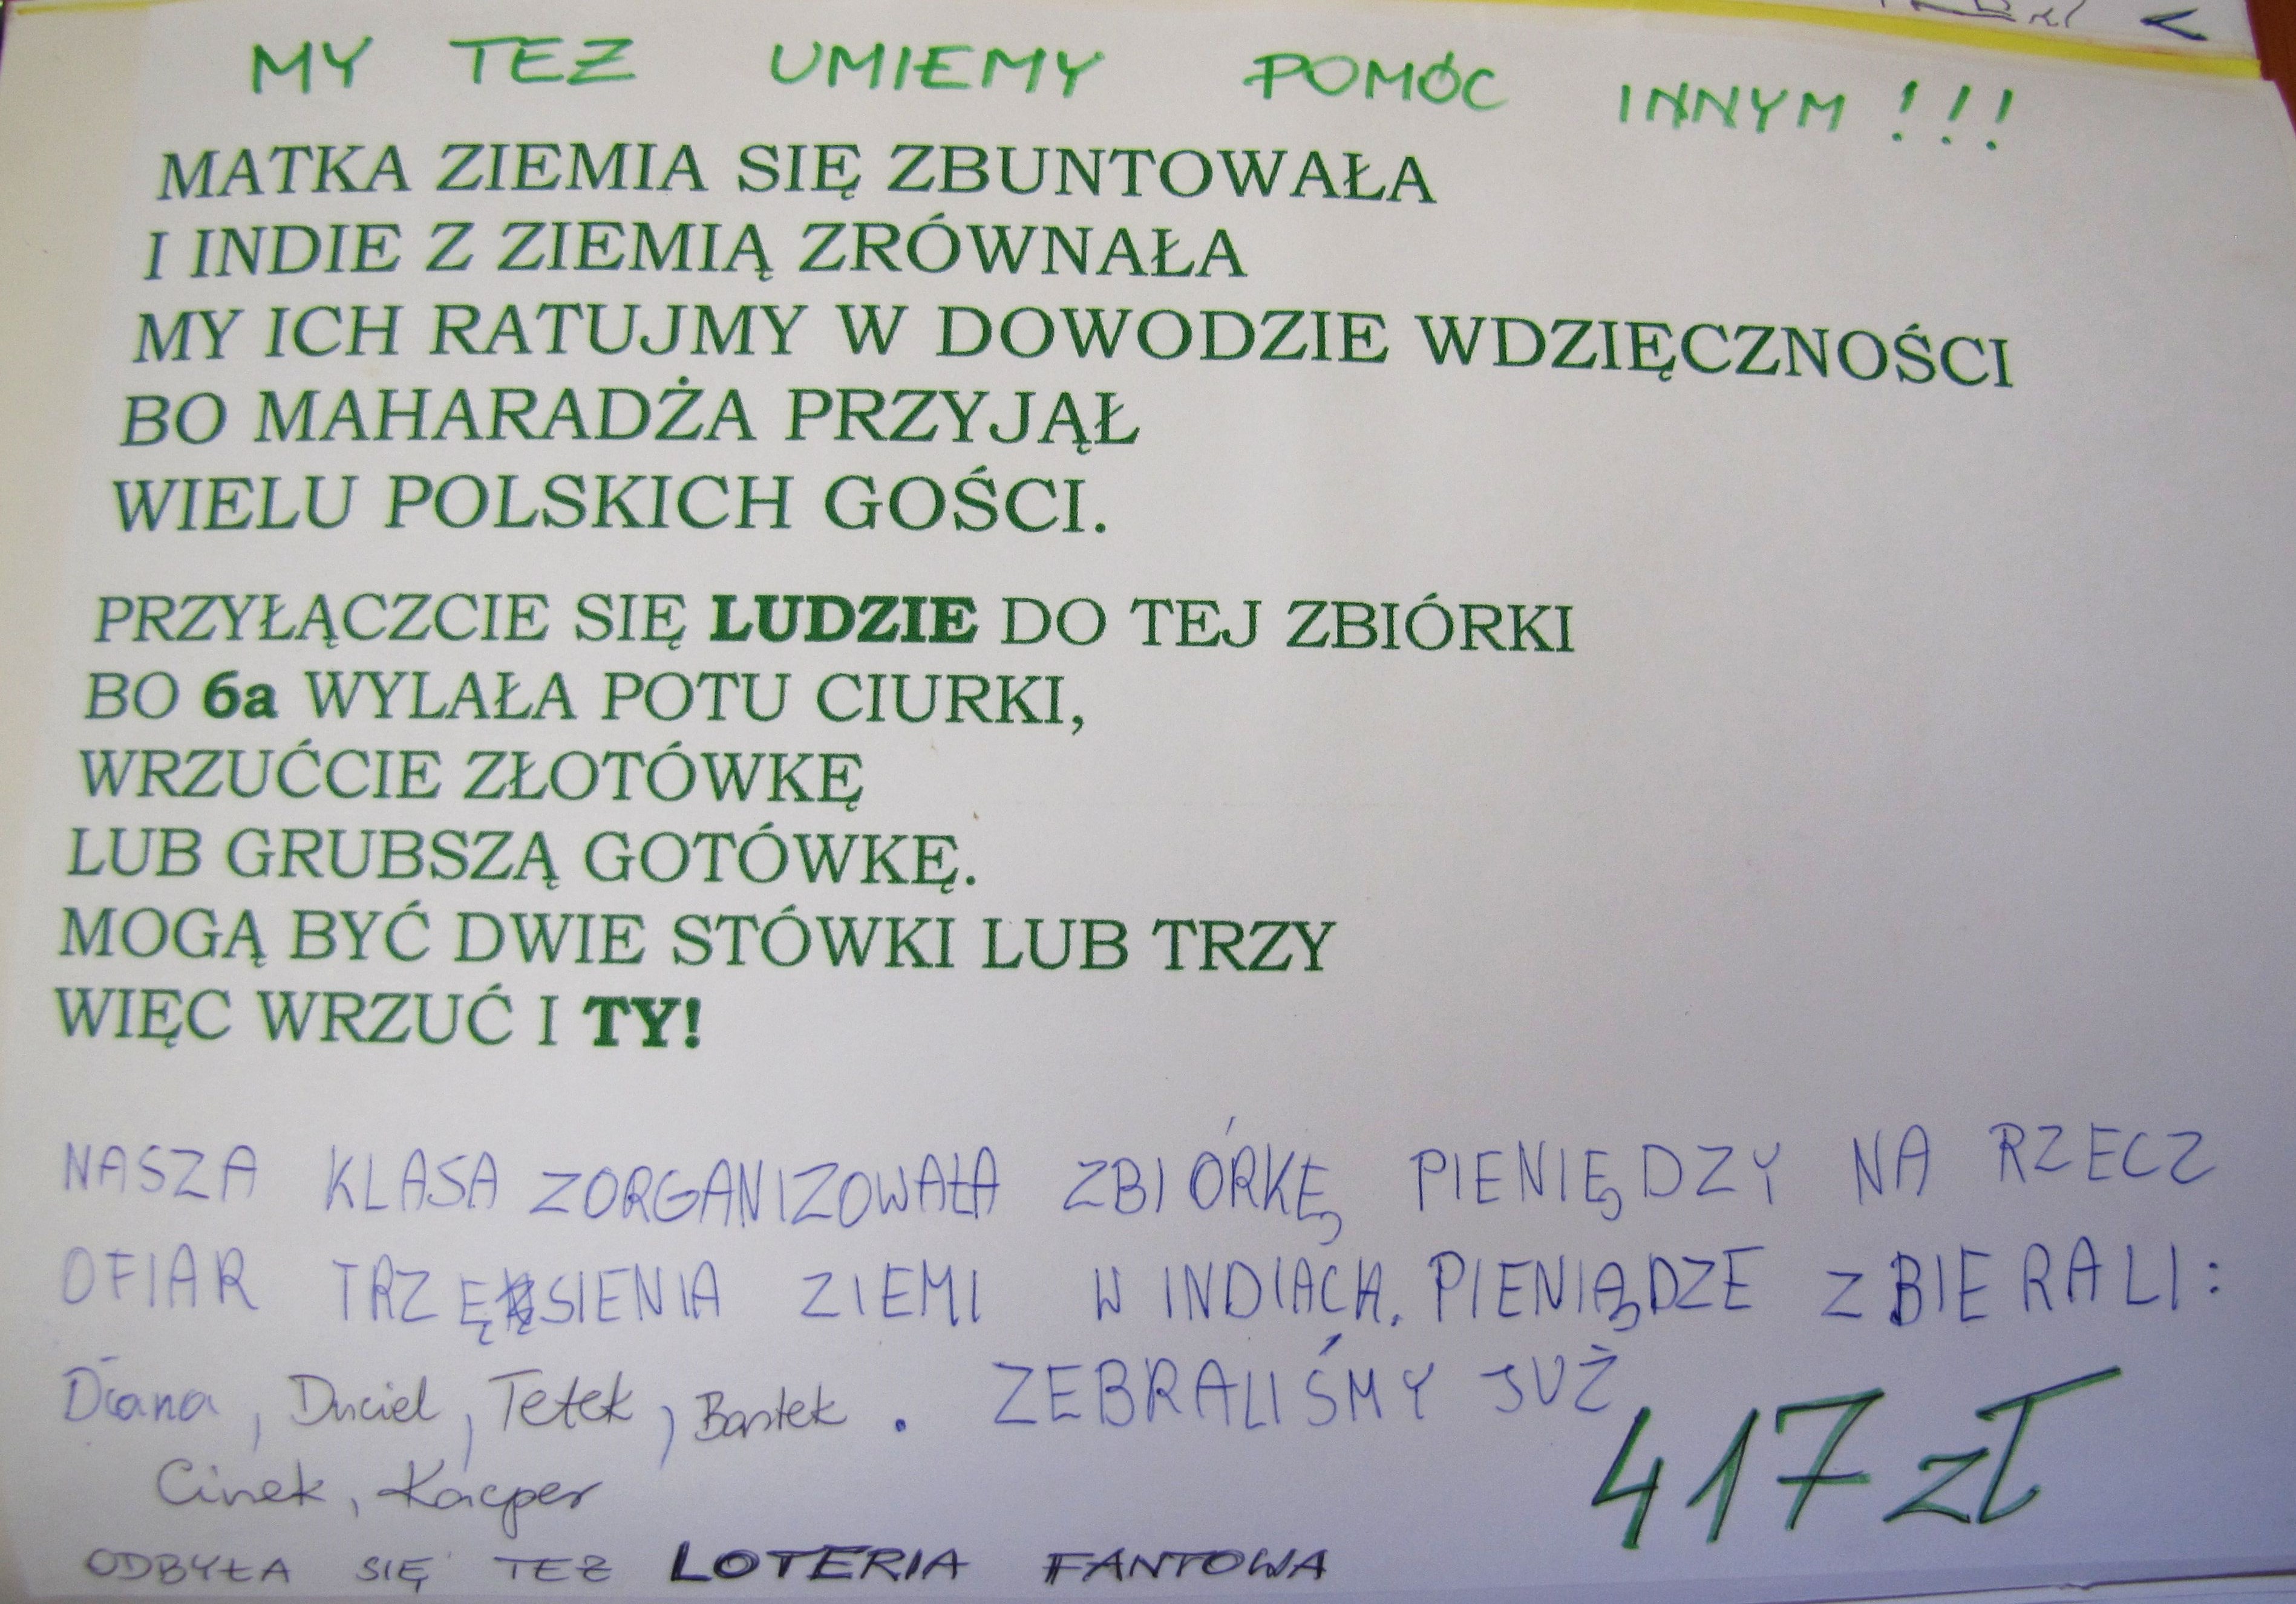 MY TEŻ UMIEMY POMÓC INNYM !!!
MATKA ZIEMIA SIĘ ZBUNTOWAŁA
I INDIE Z ZIEMIĄ ZRÓWNAŁA
MY ICH RATUJMY W DOWODZIE WDZIĘCZNOŚCI
BO MAHARADŻA PRZYJĄŁ
WIELU POLSKICH GOŚCI.
PRZYŁĄCZCIE SIĘ LUDZIE DO TEJ ZBIÓRKI
BO 6a WYLAŁA POTU CIURKI,
WRZUĆCIE ZŁOTÓWKĘ
LUB GRUBSZĄ GOTÓWKĘ.
MOGĄ BYĆ DWIE STÓWKI LUB TRZY
WIĘC WRZUĆ I TY!
NASZA KLASA ZORGANIZOWAŁA ZBIÓRKĘ PIENIĘDZY NA RZECZ
OFIAR TRZĘSIENIA ZIEMI W INDIACH. PIENIĄDZE ZBIERALI:
Diana, Duciel, Tetek, Bartek. ZEBRALIŚMY JUŻ
417 zł
Cinek, Kacper
ODBYŁA SIĘ TEŻ LOTERIA FANTOWA